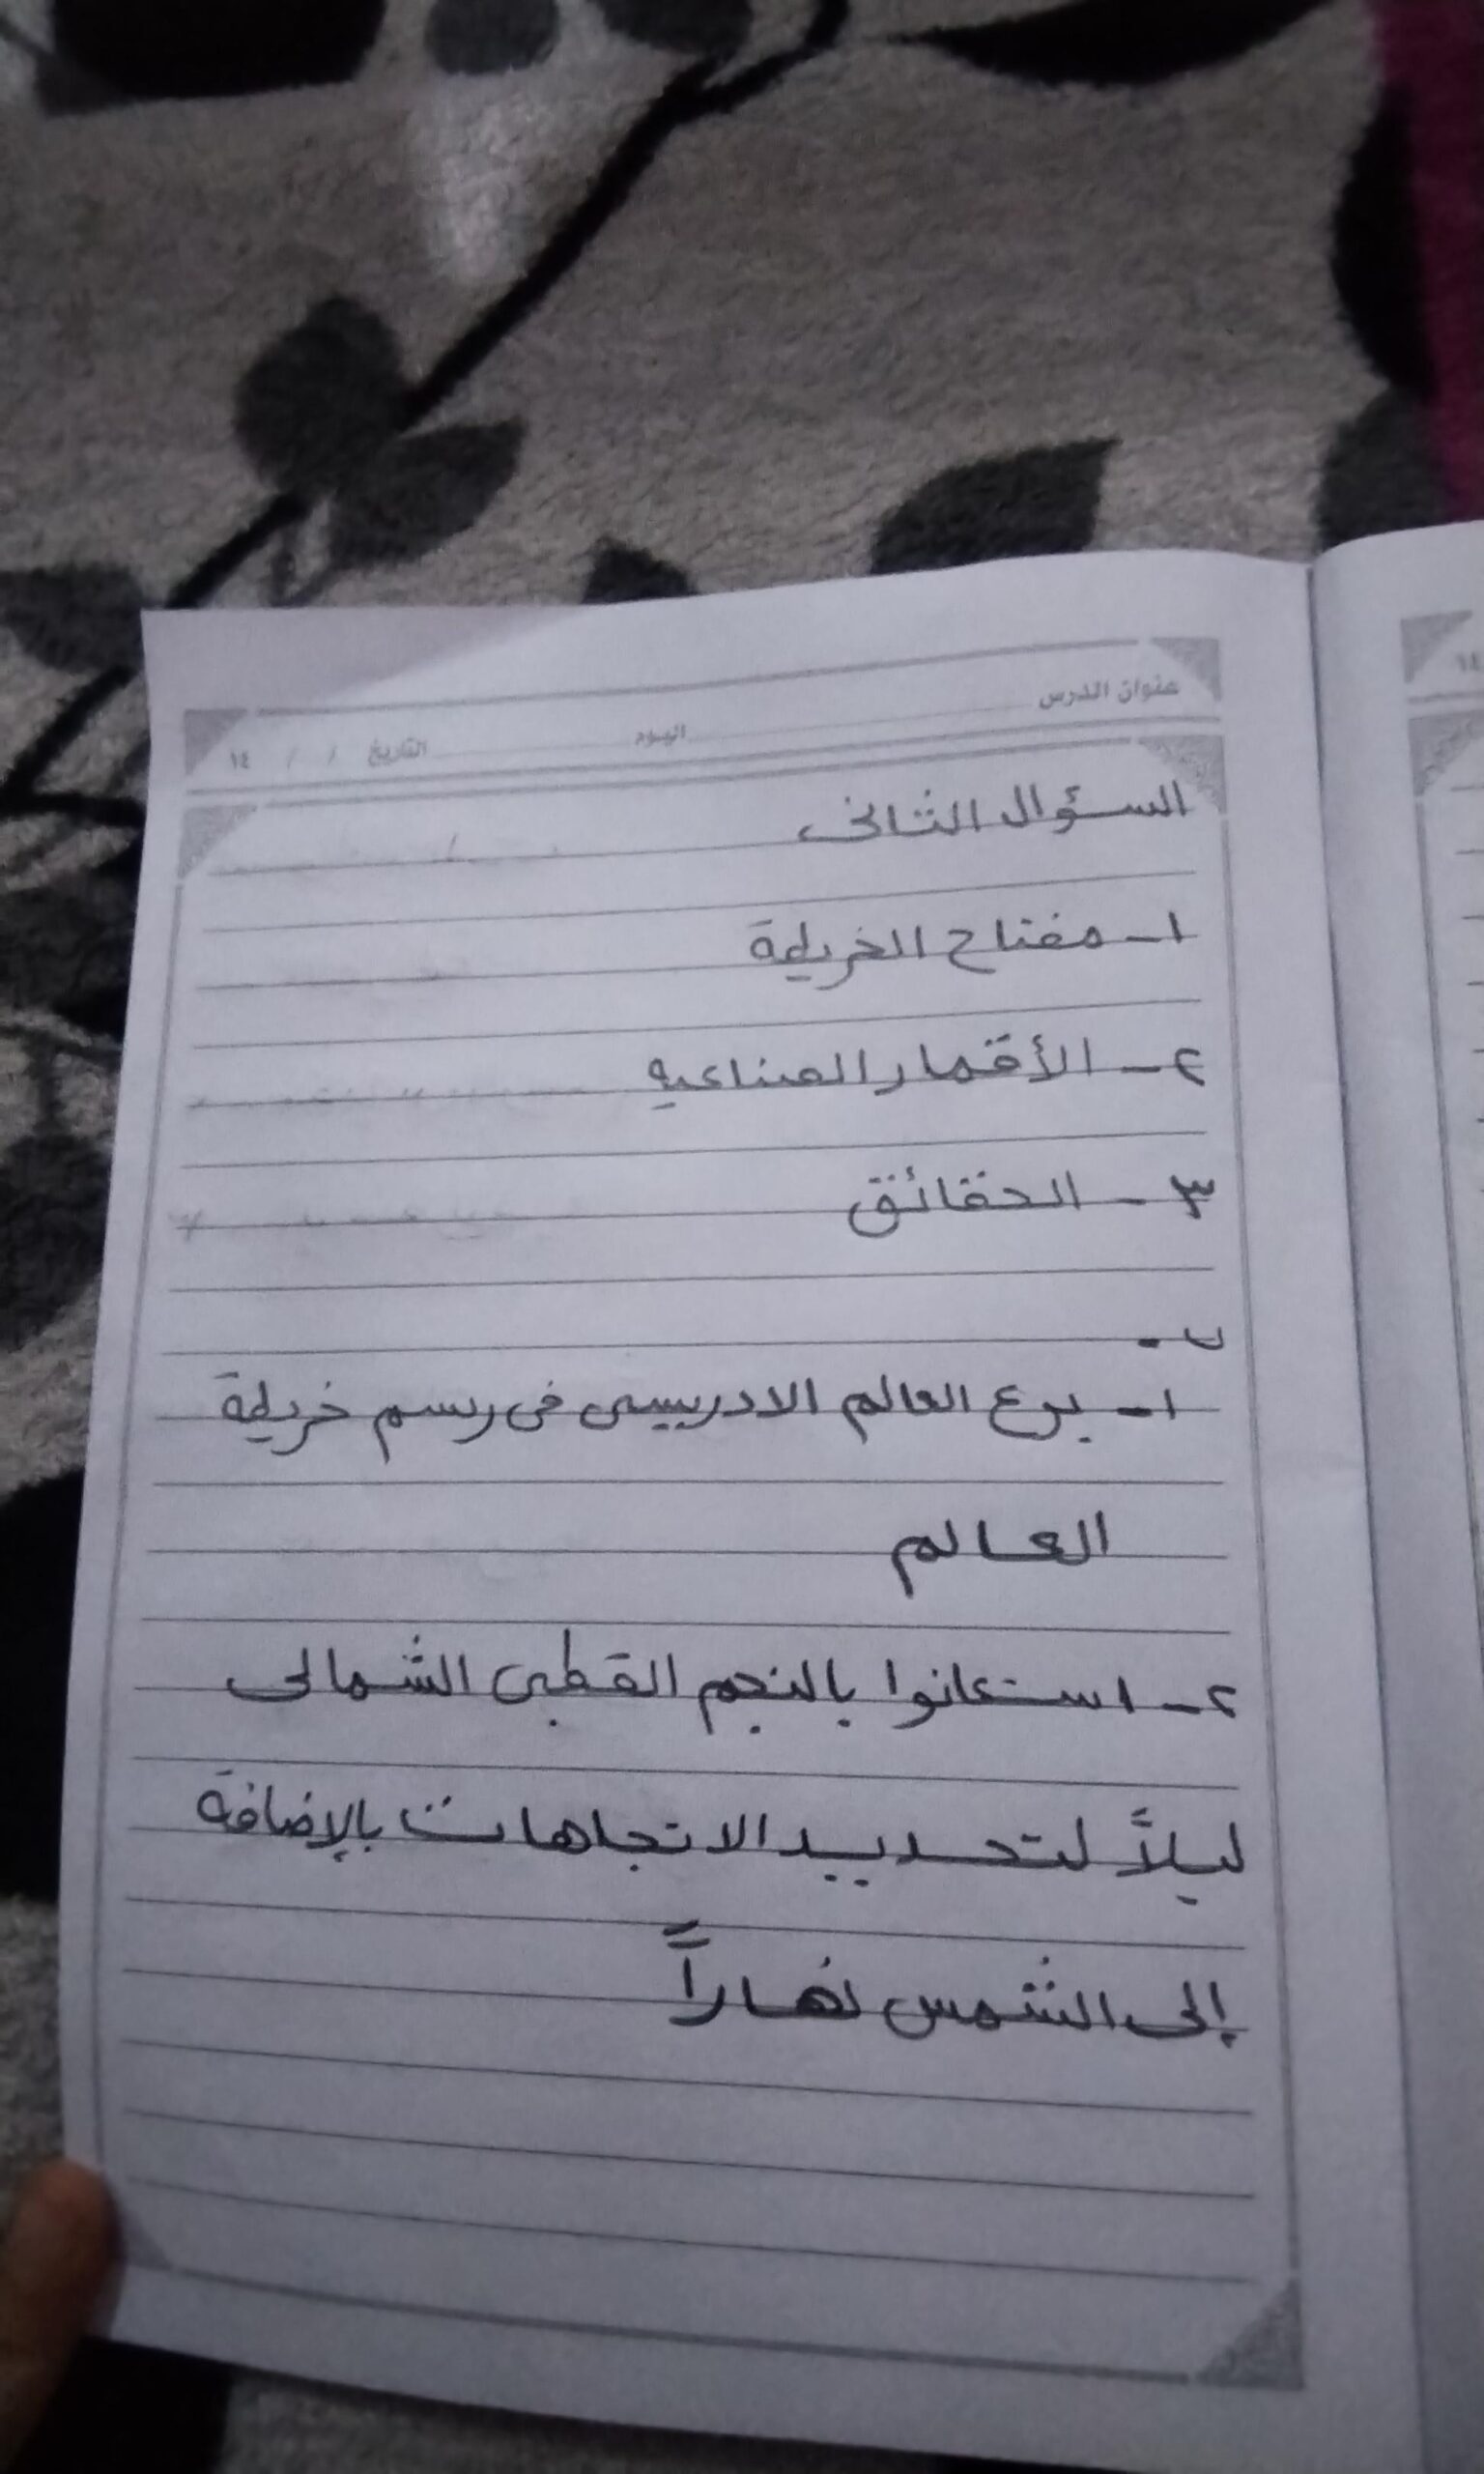 عنوان الدرس
اليوم
التاريخ / / ١٤
السؤال الثانى
١- مفتاح الخريطة
٢- الأقمار الصناعيه
٣- الحقائق
ب-
١- برع العالم الادريسى فى رسم خريطة
العالم
٢- استعانوا بالنجم القطبى الشمالى
ليلاً لتحديد الاتجاهات بالإضافة
إلى الشمس نهاراً
١٤